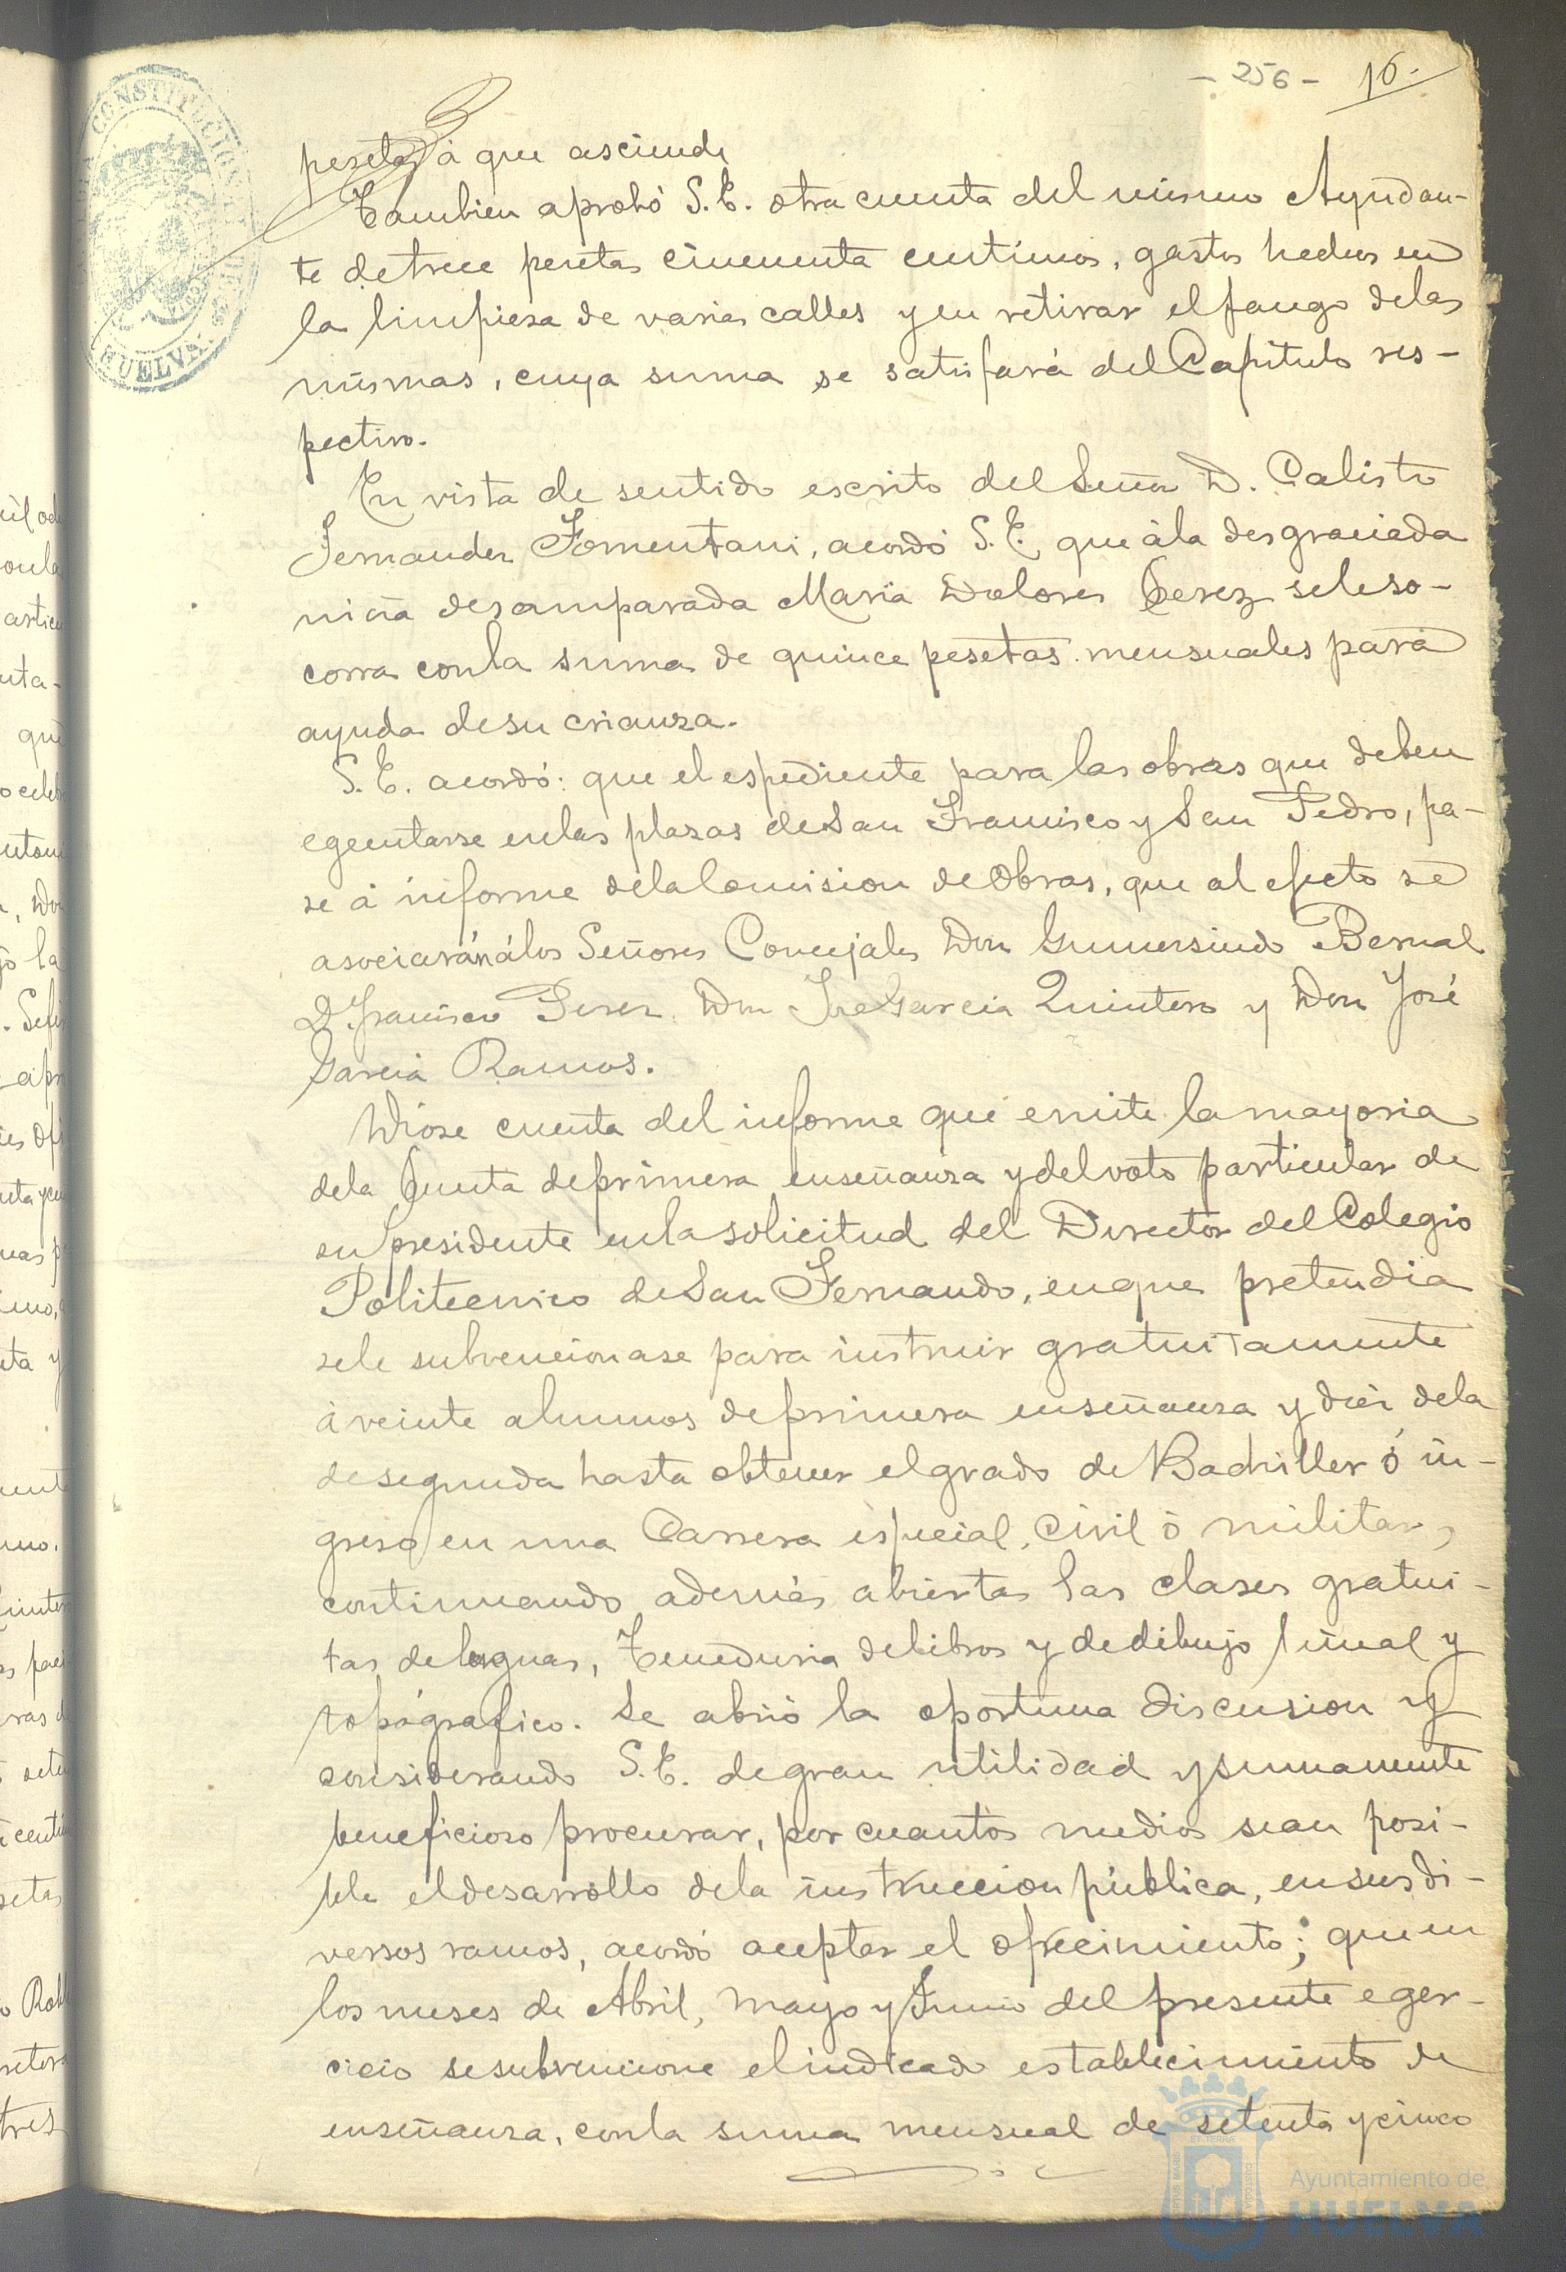 - 256 - 16.
pesetas á que asciende
Tambien aprobó S.E. otra cuenta del mismo Ayudan-
te de trece pesetas cincuenta centimos, gastos hechos en
la limpieza de varias calles y en retirar el fango de las
mismas, cuya suma se satisfará del Capitulo res-
pectivo.
En vista de sentido escrito del Señor D. Calisto
Fernandez Fomentani, acordó S.E. que á la desgraciada
niña desamparada Maria Dolores Perez se le so-
corra con la suma de quince pesetas mensuales para
ayuda de su crianza.
S.E. acordó: que el espediente para las obras que deben
egecutarse en las plazas de San Francisco y San Pedro, pa-
se á informe de la Comision de Obras, que al efecto se
asociarán á los Señores Concejales Don Gumersindo Bernal
D. Francisco Perez Don José Garcia Quintero y Don José
Garcia Ramos.
Dióse cuenta del informe que emite la mayoria
de la Junta de primera enseñanza y del voto particular de
su presidente en la solicitud del Director del Colegio
Politecnico de San Fernando, en que pretendia
se le subvencionase para instruir gratuitamente
á veinte alumnos de primera enseñanza y diez de la
de segunda hasta obtener el grado de Bachiller ó in-
greso en una Carrera especial, civil ó militar,
continuando además abiertas las clases gratui-
tas de lenguas, Teneduria de libros y de dibujo lineal y
topógrafico. Se abrió la oportuna discusion y
considerando S.E. de gran utilidad y sumamente
beneficioso procurar, por cuantos medios sean posi-
ble el desarrollo de la instruccion pública, en sus di-
versos ramos, acordó aceptar el ofrecimiento; que en
los meses de Abril, Mayo y Junio del presente eger-
cicio se subvencione el indicado establecimiento de
enseñanza, con la suma mensual de setenta y cinco
CONSTITUCION
HUELVA
Ayuntamiento de
HUELVA